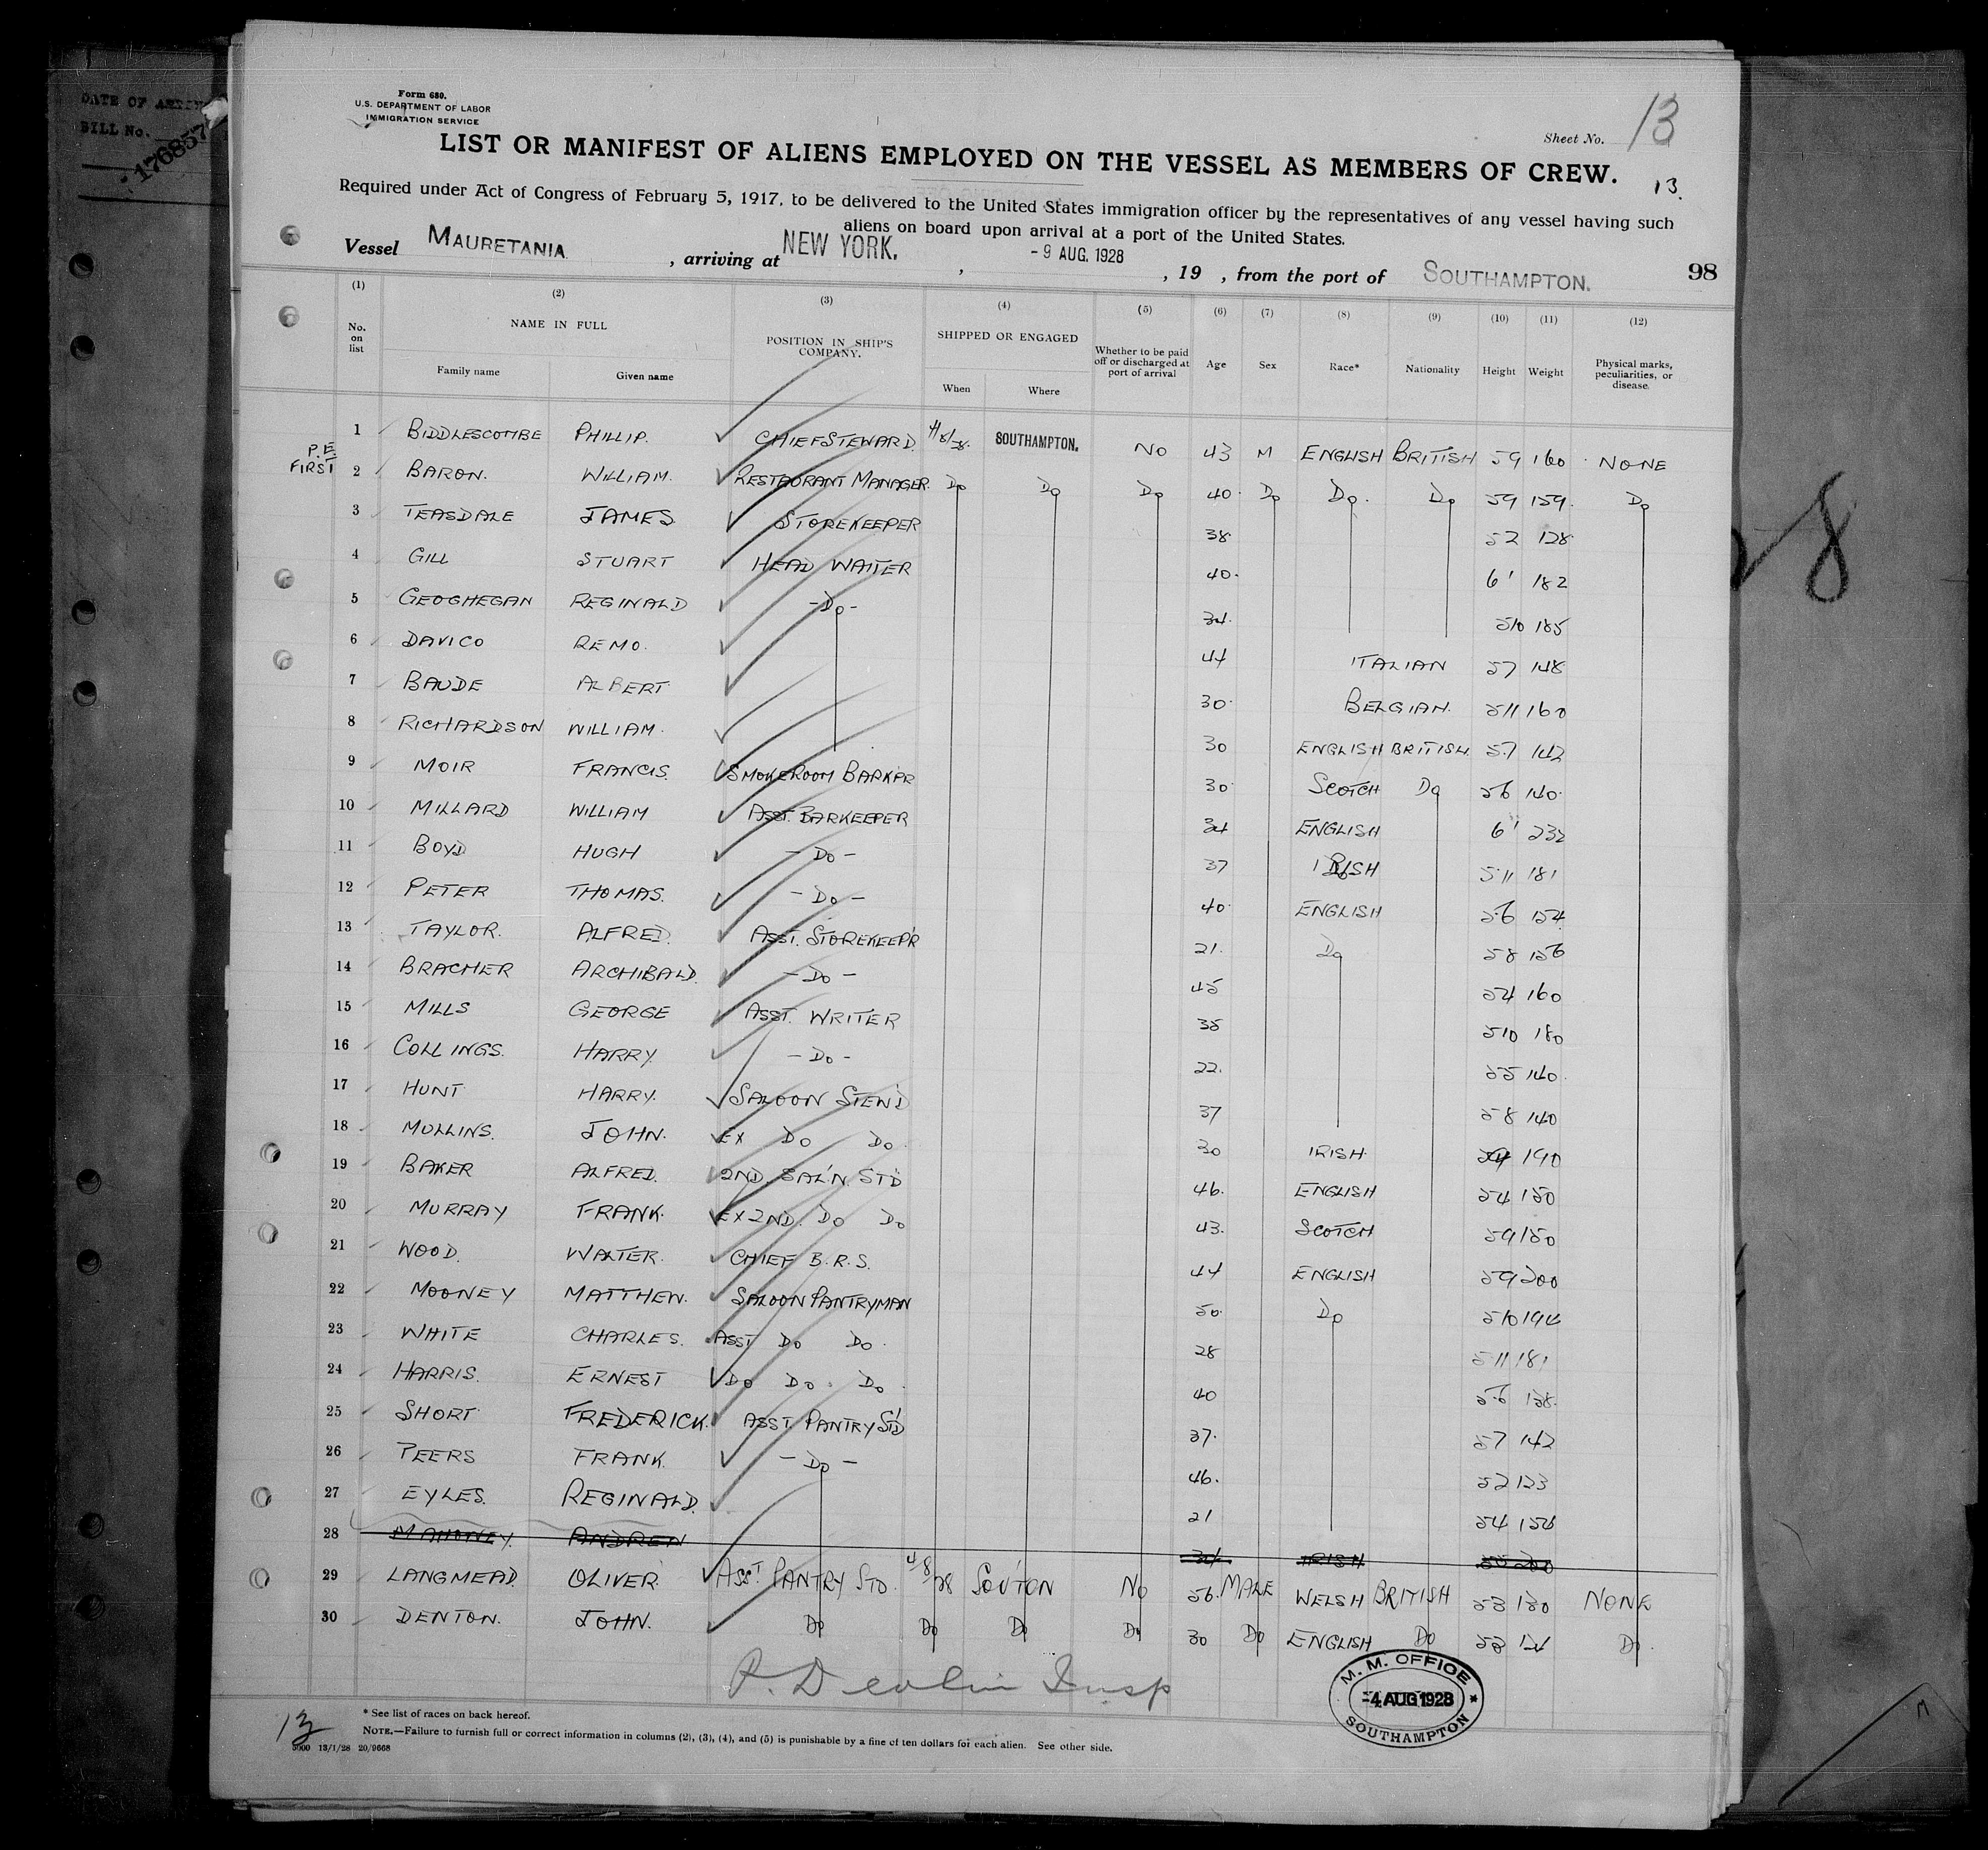 DATE OF
BILL No.
176857
Form 680.
U.S. DEPARTMENT OF LABOR
IMMIGRATION SERVICE
Sheet No. 13
LIST OR MANIFEST OF ALIENS EMPLOYED ON THE VESSEL AS MEMBERS OF CREW.
13.
Required under Act of Congress of February 5, 1917, to be delivered to the United States immigration officer by the representatives of any vessel having such
aliens on board upon arrival at a port of the United States.
Vessel MAURETANIA , arriving at NEW YORK. , - 9 AUG. 1928 , 19 , from the port of SOUTHAMPTON. 98
(1) (2) (3) (4) (5) (6) (7) (8) (9) (10) (11) (12)
No. on list NAME IN FULL POSITION IN SHIP'S COMPANY. SHIPPED OR ENGAGED Whether to be paid off or discharged at port of arrival Age Sex Race* Nationality Height Weight Physical marks, peculiarities, or disease.
Family name Given name When Where
P.E. FIRST
1 BIDDLESCOMBE PHILLIP. CHIEF STEWARD. 4/8/28. SOUTHAMPTON. NO 43 M ENGLISH BRITISH 59 160 NONE
2 BARON. WILLIAM. RESTAURANT MANAGER. Do Do Do 40. Do Do. Do 59 159. Do
3 TEASDALE JAMES STOREKEEPER 38 52 128
4 GILL STUART HEAD WAITER 40. 6' 182
5 GEOGHEGAN REGINALD -Do- 34. 510 185
6 DAVICO REMO. 44 ITALIAN 57 148
7 BAUDE ALBERT 30 BELGIAN. 511 160
8 RICHARDSON WILLIAM. 30 ENGLISH BRITISH. 57 142
9 MOIR FRANCIS. SMOKEROOM BARK'PR 30 SCOTCH Do 56 140.
10 MILLARD WILLIAM ASST. BARKEEPER 34 ENGLISH 6' 232
11 BOYD HUGH - Do - 37 IRISH 511 181
12 PETER THOMAS. - Do - 40. ENGLISH 56 154
13 TAYLOR. ALFRED. ASST. STOREKEEP'R 21. Do 58 156
14 BRACHER ARCHIBALD. - Do - 45 54 160
15 MILLS GEORGE ASST. WRITER 35 510 180
16 COLLINGS. HARRY. - Do - 22. 55 140.
17 HUNT HARRY. SALOON STEW'D 37 58 140
18 MULLINS. JOHN. EX Do Do. 30 IRISH. 190
19 BAKER ALFRED. 2ND. SAL'N. ST'D 46. ENGLISH 54 150
20 MURRAY FRANK. EX 2ND. Do Do 43. SCOTCH 59 150
21 WOOD. WALTER. CHIEF B.R.S. 44 ENGLISH 59 200
22 MOONEY MATTHEW. SALOON PANTRYMAN 50. Do 510 194
23 WHITE CHARLES. ASST Do Do. 28 511 181
24 HARRIS. ERNEST Do Do. Do. 40 56 138.
25 SHORT FREDERICK. ASST PANTRY ST'D 37. 57 142
26 PEERS FRANK. - Do - 46. 52 123
27 EYLES. REGINALD. 21 54 154
28 MAHONEY. ANDREW IRISH
29 LANGMEAD. OLIVER. ASST. PANTRY STD. 4/8/28 SO'UTON NO 56. MALE WELSH BRITISH 53 130 NONE
30 DENTON. JOHN. Do Do Do Do 30 Do ENGLISH Do 53 124 Do.
P. Devlin Insp
M. M. OFFICE
-4 AUG 1928
SOUTHAMPTON
* See list of races on back hereof.
NOTE.—Failure to furnish full or correct information in columns (2), (3), (4), and (5) is punishable by a fine of ten dollars for each alien. See other side.
13
5900 13/1/28 20/9668
8